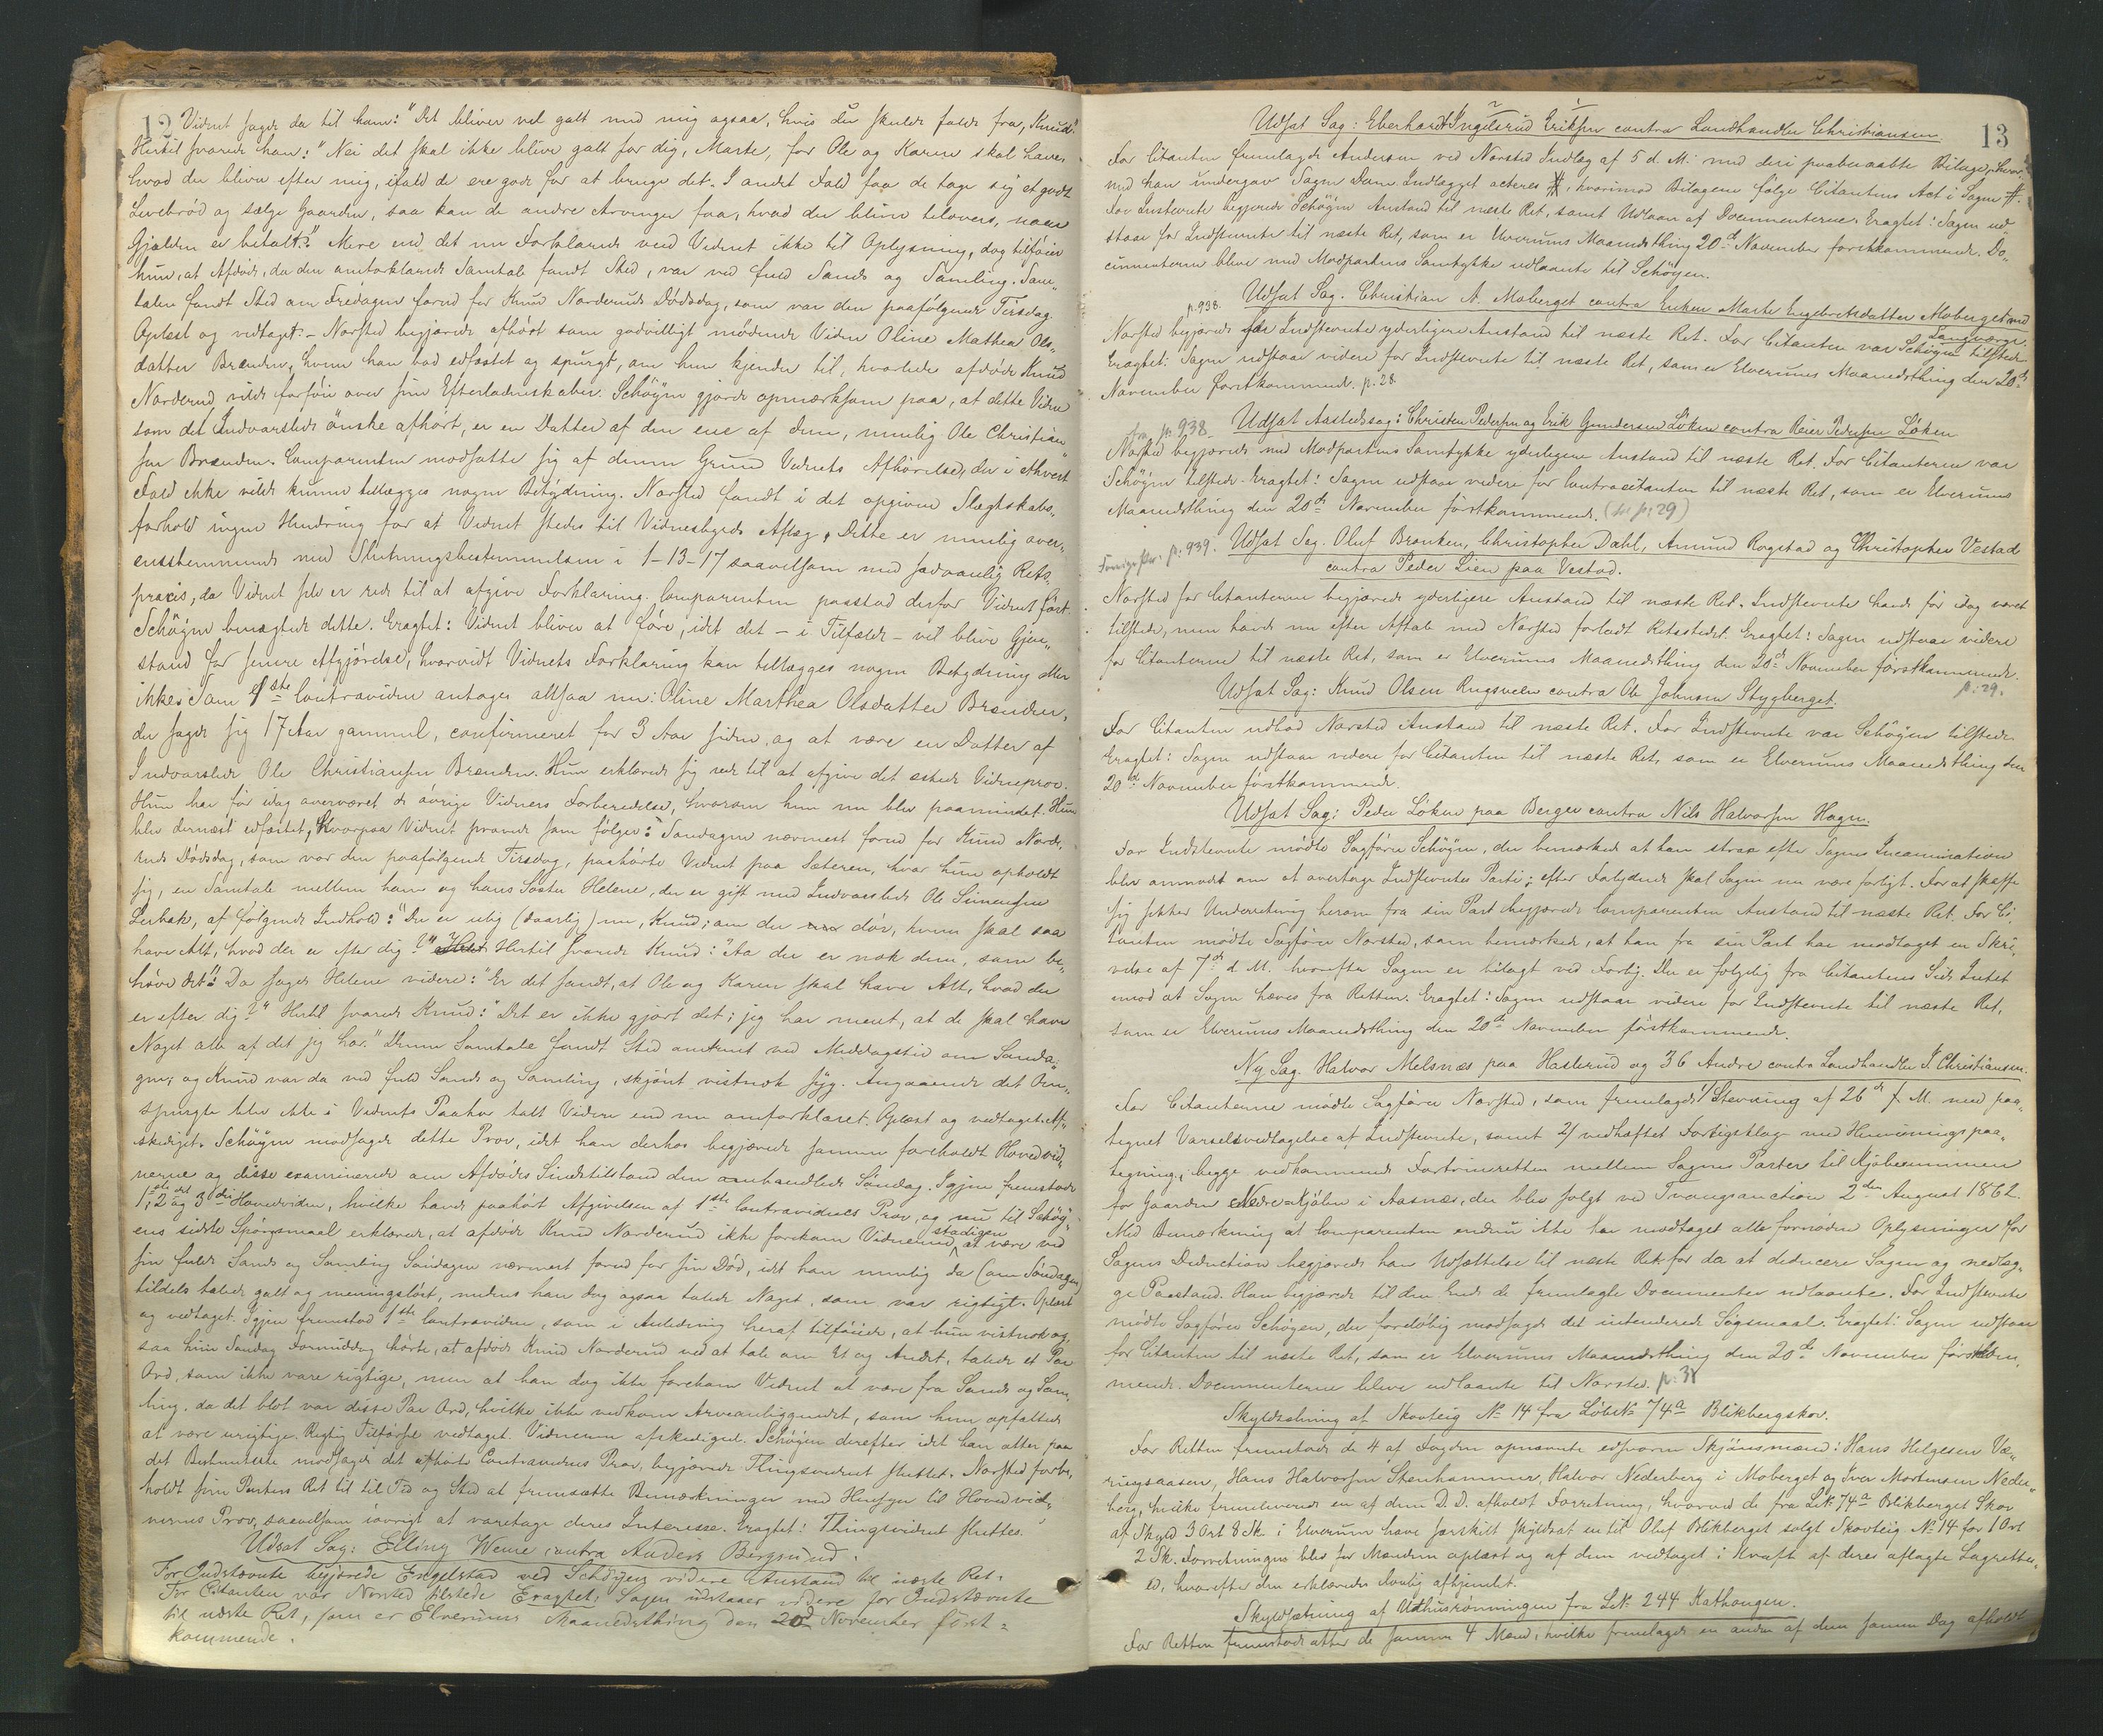 12
Vidnet sagde da til ham: "Det bliver vel galt med mig ogsaa, hvis du skulde falde fra, Knud".
Hertil svarede han: "Nei det skal ikke blive galt for dig, Marte, for Ole og Karen skal have,
hvad der bliver efter mig, ifald de ere gode for at bruge det. I andet Fald faa de tage sig et godt
Levebrød og sælge Gaarden, saa kan de andre Arvinger faa, hvad der bliver tilovers, naar
Gjælden er betalt". Mere end det nu Forklarede veed Vidnet ikke til Oplysning, dog tilføier
hun, at Afdøde, da den omforklarede Samtale fandt Sted, var ved fuld Sands og Samling. Sam„
talen fandt Sted om Fredagen forud for Knud Norderuds Dødsdag, som var den paafølgende Tirsdag.
Oplæst og vedtaget. – Norsted begjærede afhørt som godvilligt mødende Vidne Oline Mathea Ols„
datter Brænden, hvem han bad edfæstet og spurgt, om hun kjender til, hvorledes afdøde Knud
Norderud vilde forføie over sine Efterladenskaber. Schøyen gjorde opmærksom paa, at dette Vidne
som det Indvarslede ønske afhørt, er en Datter af den ene af dem, nemlig Ole Christian„
sen Brænden. Comparenten modsatte sig af denne Grund Vidnets Afhørelse, der i ethvert
Fald ikke vilde kunne tillægges nogen Betydning. Norsted fandt i det opgivne Slægtskabs„
forhold ingen Hindring for at Vidnet stedes til Vidnesbyrds Aflæg. Dette er nemlig over„
ensstemmende med Slutningsbestemmelsen i 1-13-17 saavelsom med sædvanlig Rets„
praxis, da Vidnet selv er rede til at afgive Forklaring. Comparenten paastod derfor Vidnet ført.
Schøyen benægtede dette. Eragtet: Vidnet bliver at føre, idet det – i Tilfælde – vil blive Gjen„
stand for senere Afgjørelse, hvorvidt Vidnets Forklaring kan tillægges nogen Betydning eller
ikke. Som 1ste Contravidne antages altsaa nu: Oline Marthea Olsdatter Brænden,
der sagde sig 17 Aar gammel, confirmeret for 3 Aar siden, og at være en Datter af
Indvarslede Ole Christiansen Brænden. Hun erklærede sig rede til at afgive det æskede Vidneprov.
Hun har før idag overværet de øvrige Vidners Forberedelse, hvorom hun nu blev paamindet. Hun
blev dernæst edfæstet, hvorpaa Vidnet provede som følger: Søndagen nærmest forud for Knud Norde„
ruds Dødsdag, som var den paafølgende Tirsdag, paahørte Vidnet paa Sæteren, hvor hun opholdt
sig, en Samtale mellem ham og hans Søster Helene, der er gift med Indvarslede Ole Simensen
Lerbæk, af følgende Indhold: "Du er utig (daarlig) nu, Knud; om du dør, hvem skal saa
have Alt, hvad der er efter dig?" Hertil svarede Knud: "Aa der er nok dem, som be„
høve det". Da sagde Helene videre: "Er det sandt, at Ole og Karen skal have Alt, hvad der
er efter dig?" Hertil svarede Knud: "Det er ikke gjort det; jeg har ment, at de skal have
Noget alle af det jeg har." Denne Samtale fandt Sted omtrent ved Middagstid om Sønda„
gen; og Knud var da ved fuld Sands og Samling, skjønt vistnok syg. Angaaende det Om„
spurgte blev ikke i Vidnets Paahør talt Videre end nu omforklaret. Oplæst og vedtaget. Af„
skediget. Schøyen modsagde dette Prov, idet han derhos begjærede samme foreholdt Hovedvid„
nerne og disse examinerede om Afdødes Sindstilstand den omhandlede Søndag. Igjen fremstode
1ste, 2det og 3die Hovedvidne, hvilke havde paahørt Afgivelsen af 1ste Contravidnes Prov, og nu til Schøy„
ens sidste Spørgsmaal erklærede, at afdøde Knud Norderud ikke forekom Vidnerne stadigen at være ved
sin fulde Sands og Samling Søndagen nærmest forud for sin Død, idet han nemlig da (om Søndagen)
tildels talede galt og meningsløst, medens han dog ogsaa talede Noget, som var rigtigt. Oplæst
og vedtaget. Igjen fremstod 1ste Contravidne, som i Anledning heraf tilføiede, at hun vistnok og„
saa hin Søndag Formiddag hørte, at afdøde Knud Norderud ved at tale om Et og Andet, talede et Par
Ord, som ikke vare rigtige, men at han dog ikke forekom Vidnet at være fra Sands og Sam„
ling, da det blot var disse Par Ord, hvilke ikke vedkom Arveanliggendet, som hun opfattede
at være urigtige. Rigtig Tilførsel vedtaget. Vidnerne afskediget. Schøyen derefter idet han atter paa
det Bestemteste modsagde det afhørte Contravidnes Prov, begjærede Thingsvidnet sluttet. Norsted forbe„
holdt sine Parters Ret til til Tid og Sted at fremsætte Bemærkninger med Hensyn til Hovedvid„
nernes Prov, saavelsom iøvrigt at varetage deres Interesse. Eragtet: Thingsvidnet sluttes.
Udsat Sag: Elling Wene contra Anders Bergsund.
For Indstævnte begjærede Engelstad ved Schøyen videre Anstand til næste Ret.
For Citanten var Norsted tilstede Eragtet: Sagen udstaaer videre for Indstævnte
til næste Ret, som er Elverums Maanedsthing den 20d November først=
kommende.
13
Udsat Sag: Eberhardt Ingelsrud Eriksen contra Landhandler Christiansen
For Citanten fremlagde Andersen ved Norsted Indlæg af 5 d. M. med deri paaberaabte Bilage, hvor„
med han undergav Sagen Dom. Indlægget acteres #, hvorimod Bilagene følge Citantens Act i Sagen #.
For Indstevnte begjærede Schøyen Anstand til næste Ret, samt Udlaan af Documenterne. Eragtet: Sagen ud„
staar for Indstevnte til næste Ret, som er Elverums Maanedsthing 20d November førstkommende. Do„
cumenterne blive med Modpartens Samtykke udlaante til Schøyen.
Udsat Sag. Christian A. Moberget contra Enken Marte Ingebretsdatter Moberget med
Laugværge.
p. 938.
Norsted begjærede for Indstevnte yderligere Anstand til næste Ret. For Citanten var Schøyen tilstede.
Eragtet: Sagen udstaar videre for Indstevnte til næste Ret, som er Elverums Maanedsthing den 20de
November førstkommende. p. 28.
fra p. 938. Udsat Aastedssag: Christen Pedersen og Erik Gundersen Løken contra Reier Pedersen Løken
Norsted begjærede med Modpartens Samtykke yderligere Anstand til næste Ret. For Citanterne var
Schøyen tilstede. Eragtet: Sagen udstaar videre for Contracitanten til næste Ret, som er Elverums
Maanedsthing den 20de November førstkommende. (se p. 29)
Forrige Pr. p. 939. Udsat Sag. Oluf Bronken, Christopher Dahl, Amund Rogstad og Christopher Vestad
contra Peder Lien paa Vestad.
Norsted for Citanterne begjærede yderligere Anstand til næste Ret. Indstevnte havde før idag været
tilstede, men havde nu efter Aftale med Norsted forladt Retsstedet. Eragtet: Sagen udstaar videre
for Citanterne til næste Ret, som er Elverums Maanedsthing den 20de November førstkommende.
p. 29.
Udsat Sag: Knud Olsen Rugsveen contra Ole Johnsen Stygberget.
For Citanten udbad Norsted Anstand til næste Ret. For Indstevnte var Schøyen tilstede.
Eragtet: Sagen udstaar videre for Citanten til næste Ret, som er Elverums Maanedsthing den
20de November førstkommende.
Udsat Sag: Peder Løken paa Berger contra Nils Halvorsen Hagen.
For Indstevnte mødte Sagfører Schøyen, der bemærkede at han strax efter Sagens Incamination
blev anmodet om at overtage Indstevntes Parti; efter Forlydende skal Sagen nu være forligt. For at skaffe
sig sikker Underretning herom fra sin Part begjærede Comparenten Anstand til næste Ret. For Ci„
tanten mødte Sagfører Norsted, som bemærkede, at han fra sin Part har modtaget en Skri„
velse af 7de d. M. hvorefter Sagen er bilagt ved Forlig. Der er følgelig fra Citantens Side Intet
imod at Sagen hæves fra Retten. Eragtet: Sagen udstaar videre for Indstevnte til næste Ret,
som er Elverums Maanedsthing den 20de November førstkommende.
Ny Sag. Halvor Melsnæs paa Haslerud og 36 Andre contra Landhandler J. Christiansen.
For Citanterne mødte Sagfører Norsted, som fremlagde 1/ Stevning af 26de f. M. med paa„
tegnet Varselsvedtagelse af Indstevnte, samt 2/ vedhæftet Forligsklage med Henvisningspaa„
tegning, begge vedkommende Fortrinsretten mellem Sagens Parter til Kjøbesummen
for Gaarden Nedre Kjølen i Aasnæs, der blev solgt ved Tvangsauction 2den August 1862.
Med Bemærkning at Comparenten endnu ikke har modtaget alle fornødne Oplysninger for
Sagens Deduction begjærede han Udsættelse til næste Ret for da at deducere Sagen og nedlæg„
ge Paastand. Han begjærede til den Ende de fremlagte Documenter udlaante. For Indstevnte
mødte Sagfører Schøyen, der foreløbig modsagde det intenderede Søgsmaal. Eragtet: Sagen udstaar
for Citanten til næste Ret, som er Elverums Maanedsthing den 20de November førstkom„
mende. Documenterne blive udlaante til Norsted. p. 38
Skyldsætning af Skovteig No 14 fra LøbNo 74a Blikbergskov.
For Retten fremstode de 4 af Fogden opnævnte edsvorne Skjønsmænd: Hans Helgesen Væ„
ringsaasen, Hans Halvorsen Stenhammer, Halvor Nederberg i Moberget og Iver Mortensen Neder„
berg, hvilke fremleverede en af dem D. D. afholdt Forretning, hvorved de fra LNo 74a Blikberget Skov
af Skyld 3 Ort 8 Sk. i Elverum have særskilt skyldsat en til Oluf Blikberget solgt Skovteig No 14 for 1 Ort
2 Sk. Forretningen blev for Mændene oplæst og af dem vedtaget i Kraft af deres aflagte Lagrettes„
ed, hvorefter den erklæredes lovlig afhjemlet.
Skyldsætning af Udhusrønningen fra LNo 244 Kathaugen.
For Retten fremstode atter de samme 4 Mænd, hvilke fremlagde en anden af dem samme Dag afholdt